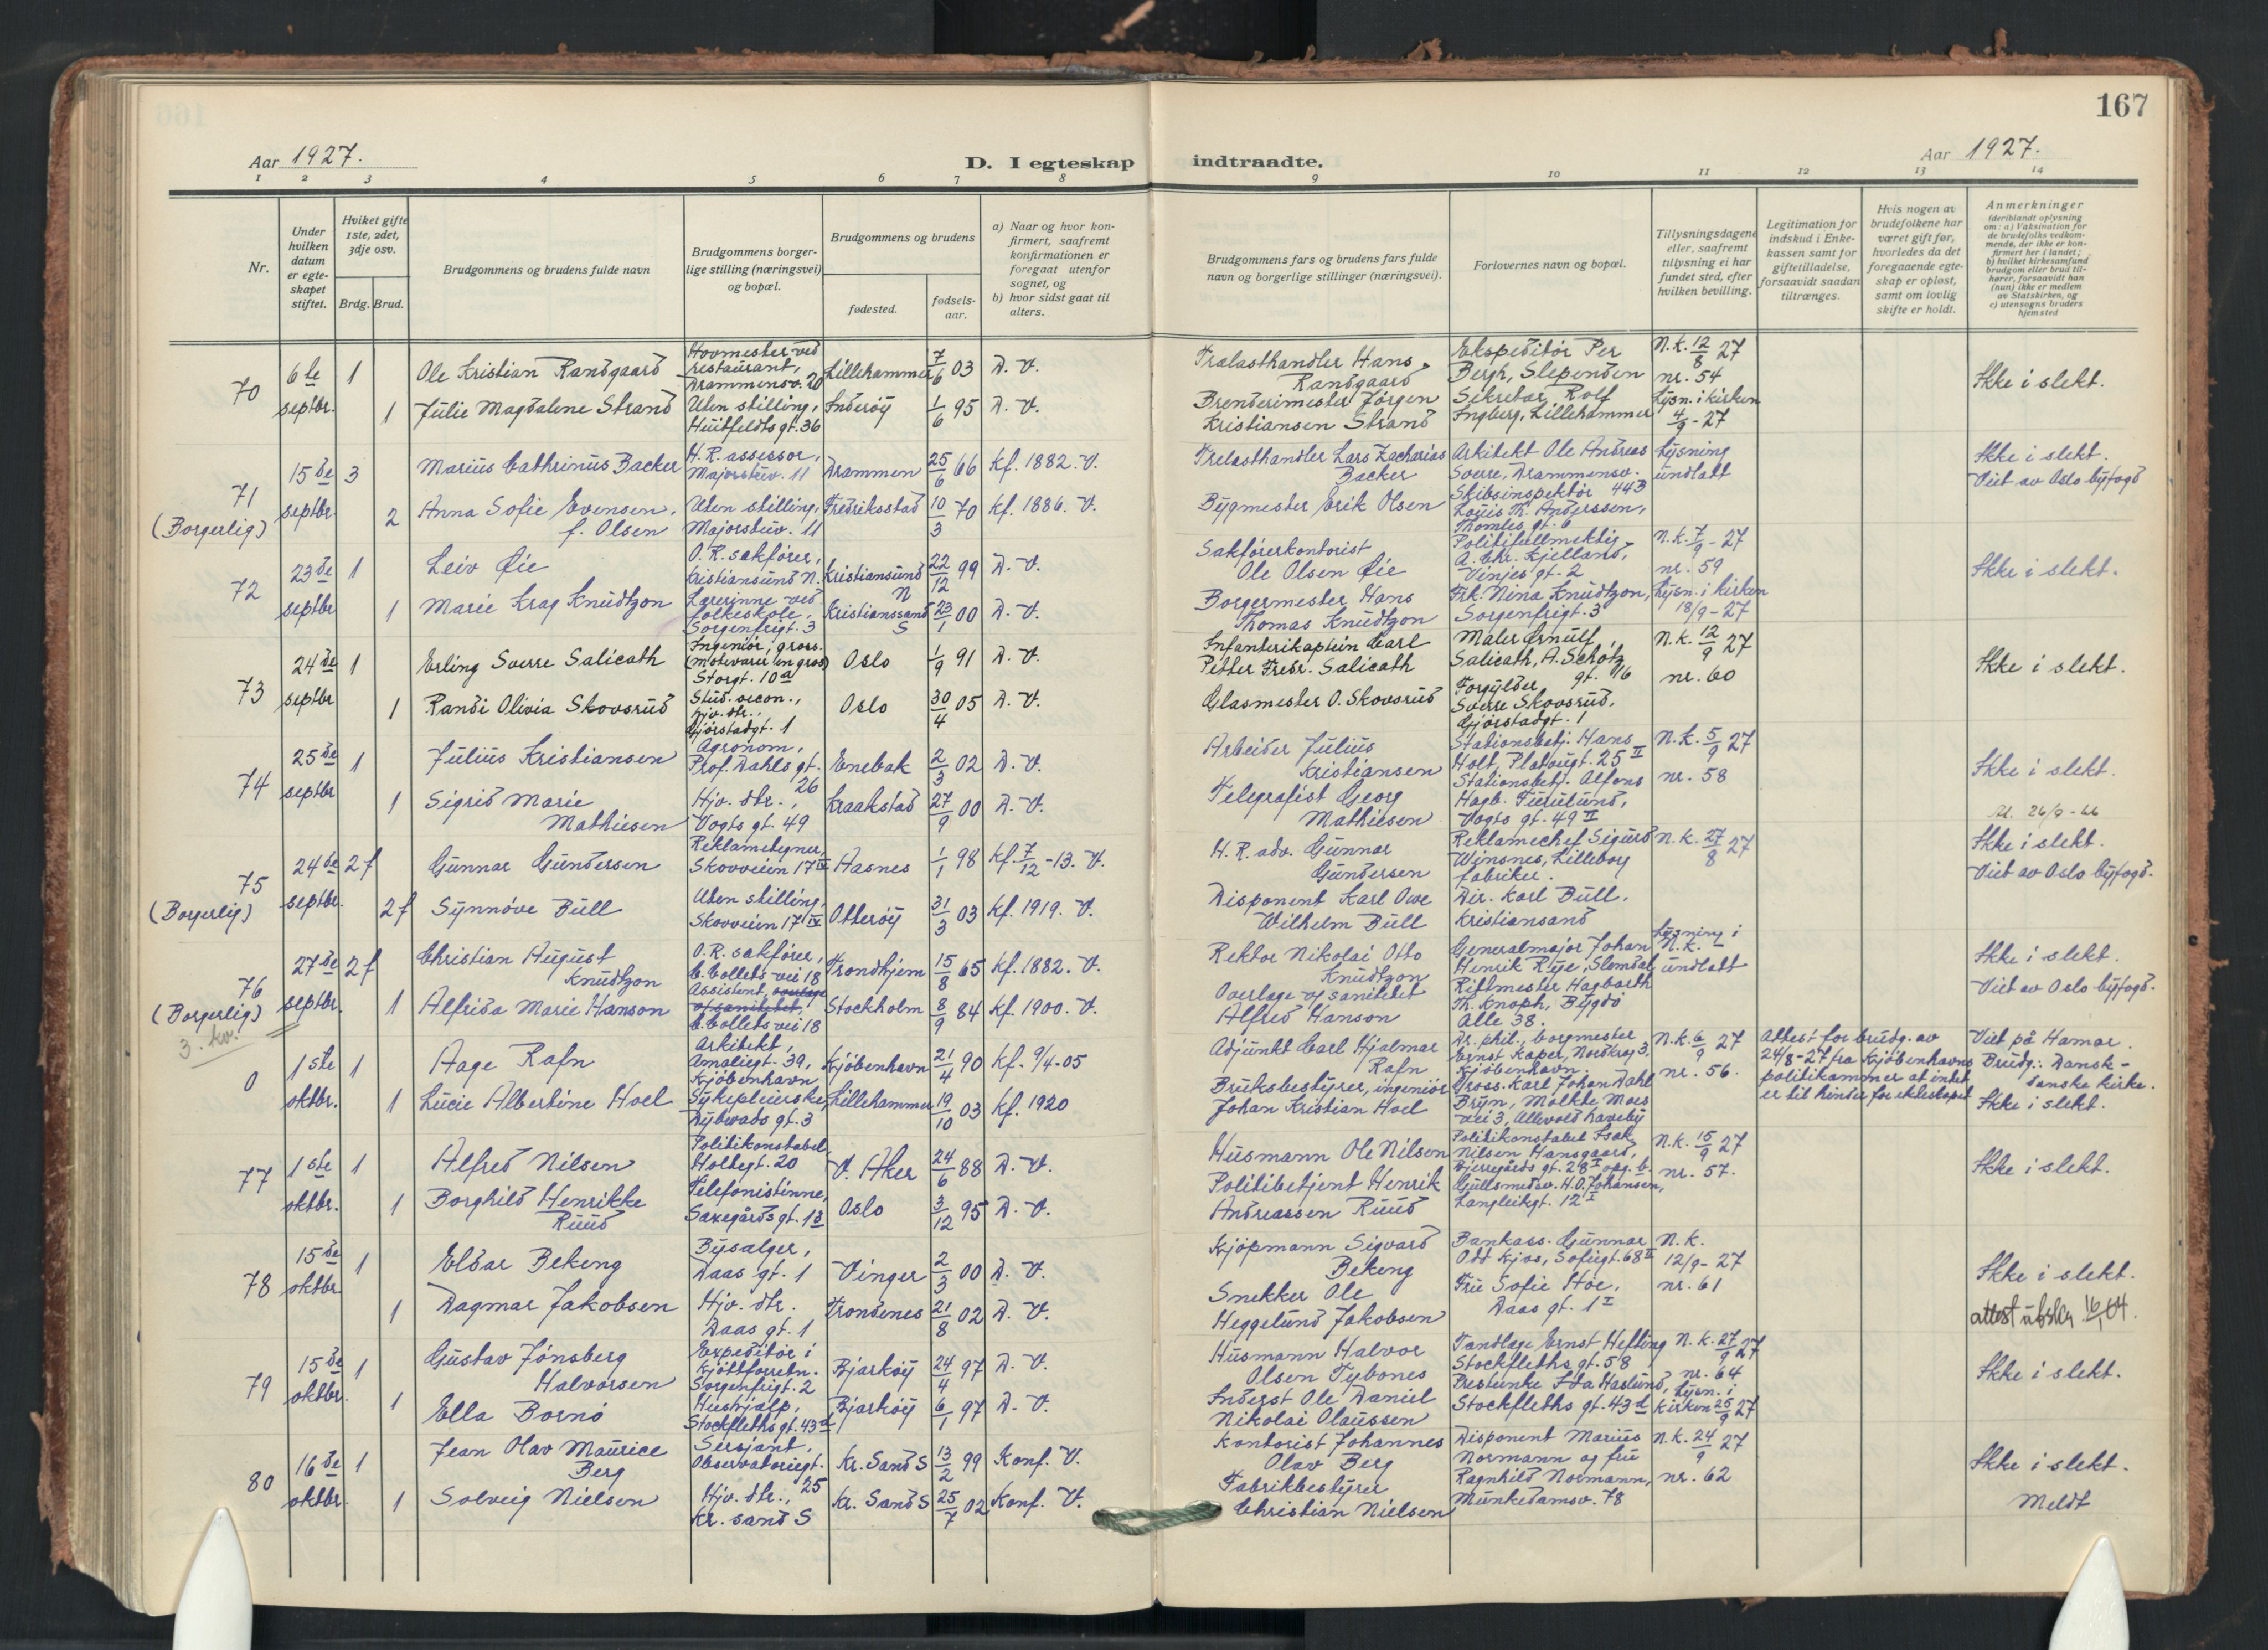 167
Aar 1927.
D. I egteskap indtraadte.
Aar 1927.
1 2 3 4 5 6 7 8 9 10 11 12 13 14
Nr.
Under hvilken datum er egteskapet stiftet.
Hviket gifte 1ste, 2det, 3dje osv.
Brdg. Brud.
Brudgommens og brudens fulde navn
Brudgommens borgerlige stilling (næringsvei) og bopæl.
Brudgommens og brudens
fødested.
fødselsaar.
a) Naar og hvor konfirmert, saafremt konfirmationen er foregaat utenfor sognet, og
b) hvor sidst gaat til alters.
Brudgommens fars og brudens fars fulde navn og borgerlige stillinger (næringsvei).
Forlovernes navn og bopæl.
Tillysningsdagene eller, saafremt tillysning ei har fundet sted, efter hvilken bevilling.
Legitimation for indskud i Enkekassen samt for giftetilladelse, forsaavidt saadan tiltrænges.
Hvis nogen av brudefolkene har været gift før, hvorledes da det foregaaende egteskap er opløst, samt om lovlig skifte er holdt.
Anmerkninger
(deriblandt oplysning om: a) Vaksination for de brudefolks vedkommende, der ikke er konfirmert her i landet; b) hvilket kirkesamfund brudgom eller brud tilhører, forsaavidt han (hun) ikke er medlem av Statskirken, og c) utensogns bruders hjemsted
70
6te septbr.
1
Ole Kristian Randgaard
Hovmester ved restaurant, Drammensv. 20
Lillehammer
7/6 03
D. V.
Trælasthandler Hans Randgaard
Ekspeditör Per Bergh, Slependen
N.K. 12/8 27 nr. 54
Ikke i slekt.
1
Julie Magdalene Strand
Uten stilling, Huitfeldts gt. 36
Inderöy
1/6 95
D. V.
Brenderimester Jörgen Kristiansen Strand
Sekretær Rolf Ingberg, Lillehammer
Lysn. i kirken 4/9 - 27
71
(Borgerlig)
15de septbr.
3
Marius Cathrinus Backer
H. R. assessor, Majorstuv. 11
Drammen
25/6 66
Kf. 1882. V.
Trelasthandler Lars Zacharias Backer
Arkitekt Ole Andreas Sverre, Drammensv. 443
Lysning undlatt
Ikke i slekt.
Viet av Oslo byfogd
2
Anna Sofie Evensen, f. Olsen
Uten stilling, Majorstuv. 11
Fredriksstad
10/3 70
Kf. 1886. V.
Bygmester Erik Olsen
Skibsinspektör Louis Th. Anderssen, Thomles gt. 6
72
23de septbr
1
Leiv Öie
O. R. sakförer, Kristiansund N.
Kristiansund N
22/12 99
D. V.
Sakförerkontorist Ole Olsen Öie
Politifullmektig A. Chr. Kjelland, Vinjes gt. 2
N.K. 7/9 - 27 nr. 59
Ikke i slekt.
1
Marie Krag Knudtzon
Lærerinne ved folkeskole, Sorgenfrigt. 3
Kristianssand S
23/1 00
D. V.
Borgermester Hans Thomas Knudtzon
Frk. Nina Knudtzon, Sorgenfrigt. 3
Lysn. i kirken 18/9 - 27
73
24de septbr
1
Erling Sverre Salicath
Ingeniör, gross. (motevarer en gros) Storgt. 10a
Oslo
1/9 91
D. V.
Infanterikaptein Carl Petter Fredr. Salicath
Maler Örnulf Salicath, A. Schötz gt. 16
N.K. 12/9 27 nr. 60
Ikke i slekt.
1
Randi Olivia Skovsrud
Stud. oecon., hjv. dtr., Gjörstadgt. 1
Oslo
30/4 05
D. V.
Glasmester O. Skovsrud
Forgylder Sverre Skovsrud, Gjörstadgt. 1
74
25de septbr
1
Julius Kristiansen
Agronom, Prof. Dahls gt. 26
Enebak
2/3 02
D. V.
Arbeider Julius Kristiansen
Stationsbetj. Hans Holt, Platougt. 25 II
N.K. 5/9 27 nr. 58
Ikke i slekt.
1
Sigrid Marie Mathiesen
Hjv. dtr., Vogts gt. 49
Kraakstad
27/9 00
D. V.
Telegrafist Georg Mathiesen
Stationsbetj. Alfons Hagb. Tuvelund, Vogts gt. 49 II
26/9 - 66
75
(Borgerlig)
24de septbr.
2f
Gunnar Gundersen
Reklametegner, Skovveien 17 IV
Hasnes
1/1 98
Kf. 7/12 - 13. V.
H. R. adv. Gunnar Gundersen
Reklamechef Sigurd Winsnes, Lilleborg fabriker.
N.K. 27/8 27
Ikke i slekt.
Viet av Oslo byfogd.
2f
Synnöve Bull
Uten stilling, Skovveien 17 IV
Otteröy
31/3 03
Kf. 1919. V.
Disponent Karl Owe Wilhelm Bull
Dir. Karl Bull, Kristiansand
76
(Borgerlig)
3. kv.
27de septbr.
2f
Christian August Knudtzon
O. R. sakförer, C. Collets vei 18
Trondhjem
15/8 65
Kf. 1882. V.
Rektor Nikolai Otto Knudtzon
Generalmajor Johan Henrik Rye, Slemdal
Lysning i N.K. undlatt
Ikke i slekt.
Viet av Oslo byfogd.
1
Alfrida Marie Hanson
Assistent, overlæge of sanitetet, C. Collets vei 18
Stockholm
8/9 84
Kf. 1900. V.
Overlæge of sanitetet Alfred Hanson
Rittmester Hagbarth Th. Knoph, Bygdö Alle 38.
0
1ste oktbr.
1
Aage Rafn
Arkitekt, Amaliegt. 39, Kjöbenhavn
Kjöbenhavn
21/4 90
Kf. 9/4-05
Adjunkt Carl Hjalmar Rafn
Dr. phil., borgmester Ernst Kaper, Nordkrog 3, Kjöbenhavn
N.K. 6/9 27 nr. 56.
Attest for brudg. av 24/8-27 fra Kjöbenhavns politikammer at intet er til hinder for ekteskapet
Viet på Hamar.
Brudg.: Dansk - danske kirke.
Ikke i slekt.
1
Lucie Albertine Hoel
Sykepleierske, Dybwads gt. 3
Lillehammer
19/10 03
Kf. 1920
Bruksbestyrer, ingeniör Johan Kristian Hoel
Gross. Karl Johan Dahl Bryn, Moltke Moes vei 3, Ullevold haveby
77
1ste oktbr.
1
Alfred Nilsen
Politikonstabel, Holtegt. 20
V. Aker
24/6 88
D. V.
Husmann Ole Nilsen
Politikonstabel Isak Nilsen Hansgaard, Bjerregårds gt. 28 I opg. b.
N.K. 15/9 27 nr. 57.
Ikke i slekt.
1
Borghild Henrikke Ruud
Telefonistinne, Saxegårds gt. 13
Oslo
3/12 95
D. V.
Politibetjent Henrik Andreassen Ruud
Gullsmedsv. H.O. Johansen, Langleikgt. 12 I
78
15de oktbr.
1
Eldar Bekeng
Bysælger, Daas gt. 1
Vinger
2/3 00
D. V.
Kjöpmann Sigvard Bekeng
Bankass. Gunnar Odd Kjos, Sofiegt. 68 II
N.K. 12/9 - 27 nr. 61
Ikke i slekt.
1
Dagmar Jakobsen
Hjv. dtr. Daas gt. 1
Trondenes
21/8 02
D. V.
Snekker Ole Heggelund Jakobsen
Fru Sofie Höe, Daas gt. 1 I
attest utst. 16/1 64.
79
15de oktbr.
1
Gustav Jönsberg Halvorsen
Expeditör i Kjöttforretn. Sorgenfrigt. 2
Bjarköy
24/4 97
D. V.
Husmann Halvor Olsen Tybones
Tandlæge Ernst Hefting Stockfleths gt. 58
N.K. 27/9 27 nr. 64
Ikke i slekt.
1
Ella Bornö
Hushjælp, Stockfleths gt. 43d
Bjarköy
6/1 97
D. V.
Inderst Ole Daniel Nikolai Olaussen
Presteenke Ida Haslund, Stockfleths gt. 43d
Lysn. i kirken 25/9 27
80
16de oktbr.
1
Jean Olav Maurice Berg
Sersjant, Observatoriegt. 25
Kr. Sand S
13/2 99
Konf. V.
Kontorist Johannes Olav Berg
Disponent Marius Normann og fru Ragnhild Normann, Munkedamsv. 78
N.K. 24/9 27 nr. 62
Ikke i slekt.
Meldt
1
Solveig Nielsen
Hjv. dtr., Kr. sand S
Kr. Sand S
25/7 02
Konf. V.
Fabrikbestyrer Christian Nielsen